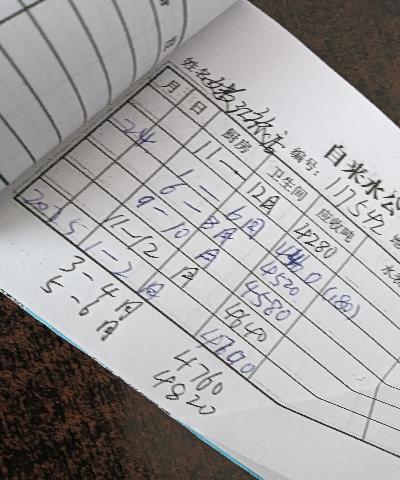 自来水公
姓名 编号: 111542
月 日 厨房 卫生间 应收吨 水表
11—12月 4280
24 1—6月 4460 (180)
6—8月 4520
9—10月 4580
11—12月 4640
2025 1—2月 4700
3—4月 4760
5—6月 4820